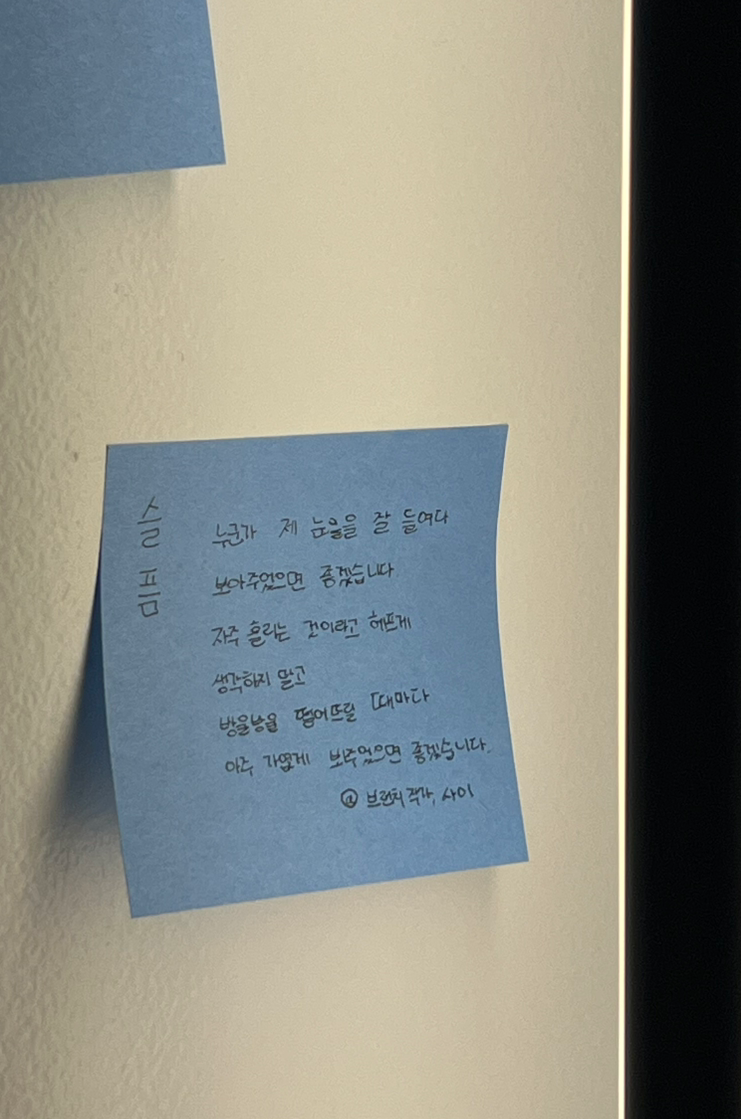 슬픔
누군가 제 눈물을 잘 들여다
보아주었으면 좋겠습니다
자주 흘리는 것이라고 헤프게
생각하지 말고
방울방울 떨어뜨릴 때마다
아주 가엽게 봐주었으면 좋겠습니다.
@ 브런치 작가, 사이